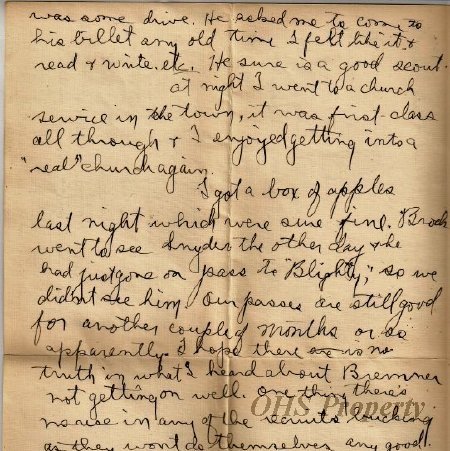 was some drive. He asked me to come to
his billet any old time I felt like it &
read & write. etc. He sure is a good scout.
at night I went to a church
service in the town, it was first-class
all through & I enjoyed getting into a
"real" church again.
I got a box of apples
last night which were sure fine. Brock
went to see Snyder the other day & he
had just gone on pass to "Blighty," so we
didn't see him. Our passes are still good
for another couple of months or so
apparently. I hope there is no
truth in what I heard about Bremner
not getting on well. One thing there's
no use in any of the recruits kicking
as they wont do themselves any good.
OHS Property